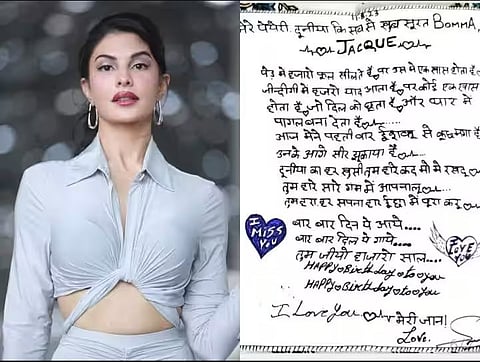 मेरे प्यारी, दुनीया कि सब से खुब सूरत BOMMA,
JACQUE
पेड़ मे हजारो फूल खीलते है, पर उस मे एक खास होता है
जीन्देगी मे हजारो प्यार आता है, पर कोई एक खास
होता है, जो दिल को छूता है और प्यार मे
पागल बना देता है.......
आज मैने पहली बार ईश्वर से कुछ मंगा है
उनके आगे सीर झुकाया है...
दुनीया का हर खुसी तुम्हारे कदमो मे रखदू
तुम्हारे सारे गम मे आपनालू
तुम्हारा हर सपना हर ईच्छा मे पूरा करू
I MISS YOU
बार बार दिन ये आये....
बार बार दिल ये गाये....
तुम जीयो हजारो साल....
I LOVE YOU
HAPPY Birthday to you
HAPPY Birthday to you
I Love You मेरी जान!
Love.